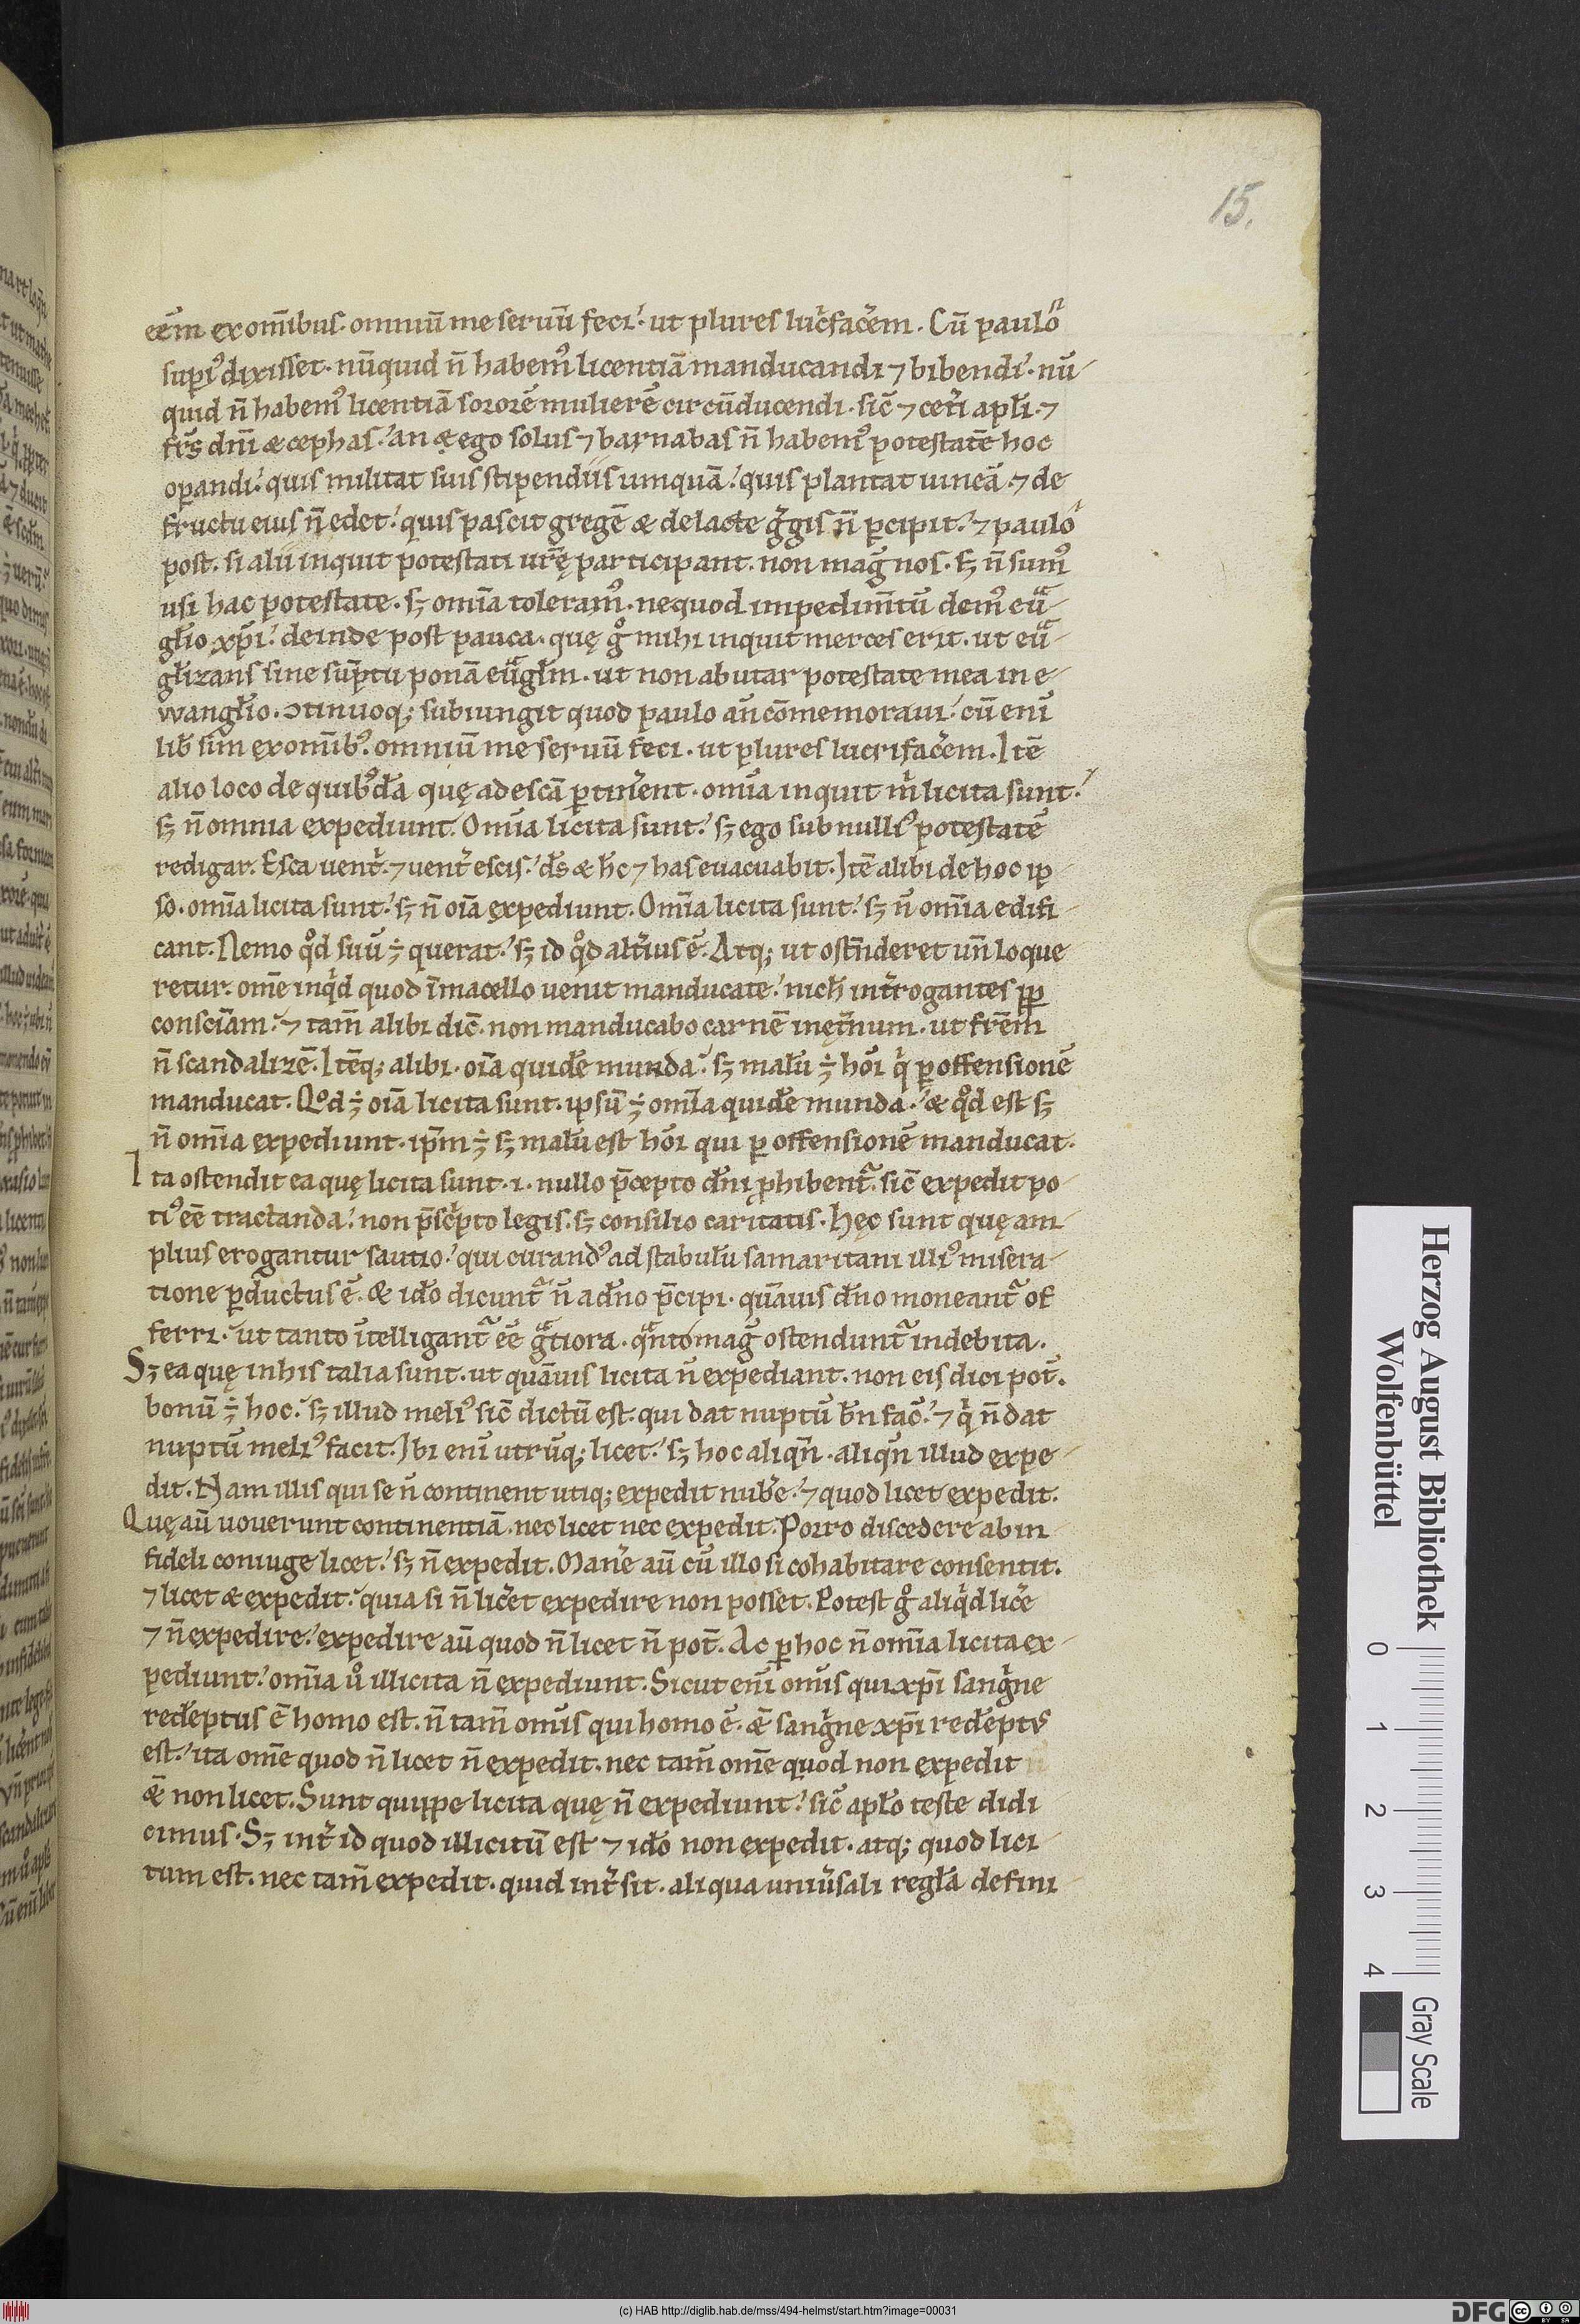 15.
eēm ex om̄ibus. omniū me seruū feci. ut plures lucͥfacͤem. Cū paulo
supiꝰ dixisset. nūquid n̄ habemꝰ licentiā manducandi ⁊ bibendi. nū
quid n̄ habemꝰ licentiā sororē mulierē circūducendi. sic̄ ⁊ cetͥi apłi. ⁊
fr̄s dn̄i & cephas. an & ego solus ⁊ barnabas n̄ habemꝰ potestatē hoc
oꝑandi. quis militat suis stipendiis umquā. quis plantat uineā. ⁊ de
fructu eius n̄ edet. quis pascit gregē & de lacte gͤgis n̄ ꝑcipit. ⁊ paulo
post. si alii inquit potestati ur̄ę participant. non maḡ nos. sꝫ n̄ sumꝰ
usi hac potestate. sꝫ om̄ia toleramꝰ. ne quod impedim̄tū demꝰ euͣ
gło xp̄i. deinde post pauca. quę gͦ mihi inquit merces erit. ut euͣ
głizans sine sūptu ponā euͣgłm. ut non abutar potestate mea in e
wangło. ↄtinuoqꝫ subiungit quod paulo an̄ cōmemoraui. cū eni̅
lib̄ sim ex omnibꝰ. omniū me seruū feci. ut plures lucrifacͤem. Itē
alio loco de quibꝰdā quę ad escā ꝑtinͤent. om̄ia inquit mͥ licita sunt.
sꝫ n̄ omnia expediunt. Om̄ia licita sunt. sꝫ ego sub nulliꝰ potestatē
redigar. Esca uentͥ. ⁊ uentͤ escis. ds̄ & hc̄ ⁊ has euacuabit. Itē alibi de hoc ip
so. om̄ia licita sunt. sꝫ n̄ oīa expediunt. Om̄ia licita sunt. sꝫ n̄ om̄ia edifi
cant. Nemo qͦd suū ÷ querat. sꝫ id qͦd altͤius ē. Atqꝫ ut ostn̄deret un̄ loque
retur. om̄e inqͥd quod ī macello uenit manducate. nich̄ intͤrogantes ꝓp
consciam̄. ⁊ tam̄ alibi dic̄. non manducabo carnē in ętͤnum. ut frēm
n̄ scandalizē. Itēqꝫ alibi. oīa quidē munda. sꝫ malū ÷ hōi qͥ ꝑ offensionē
manducat. Qͦd ÷ oīa licita sunt. ipsū ÷ om̄ia quidē munda. & qͦd est sꝫ
n̄ om̄ia expediunt. ip̄m ÷ sꝫ malū est hōi qui ꝑ offensionē manducat.
Ita ostendit ea quę licita sunt. i. nullo p̄cepto dn̄i ꝓhibentͬ. sic̄ expedit po
tiꝰ eē tractanda. non p̄scͥpto legis. sꝫ consilio caritatis. Hęc sunt quę am
plius erogantur sautio. qui curandꝰ ad stabulū samaritani illiꝰ misera
tione ꝑductus ē. & idō dicuntͬ n̄ a dn̄o p̄cipi. quāuis dn̄o moneantͬ of
ferri. ut tanto ītelligantͬ eē gͣtiora. qͣnto maḡ ostenduntͬ indebita.
Sꝫ ea quę in his talia sunt. ut quāuis licita n̄ expediant. non eis dici pot̄.
bonū ÷ hoc. sꝫ illud meliꝰ sic̄ dictū est. qui dat nuptū bn̄ fac̄. ⁊ qͥ n̄ dat
nuptū meliꝰ facit. Ibi eni̅ utrūqꝫ licet. sꝫ hoc aliqn̄. aliqn̄ illud expe
dit. Nam illis qui se n̄ continent utiqꝫ expedit nubͤe. ⁊ quod licet expedit.
Quę aū uouerunt continentiā. nec licet nec expedit. Porro discedere ab in
fideli coniuge licet. sꝫ n̄ expedit. Manͤe aū cū illo si cohabitare consentit.
⁊ licet & expedit. quia si n̄ licͤet expedire non posset. Potest gͦ aliqͥd licͤe
⁊ n̄ expedire. expedire aū quod n̄ licet n̄ pot̄. Ac ꝑ hoc n̄ om̄ia licita ex
pediunt. om̄ia uͦ illicita n̄ expediunt. Sicut eni̅ omīs qui xp̄i sangͥne
redēptus ē homo est. n̄ tam̄ omīs qui homo ē. &̄ sangͥne xp̄i redēptꝰ
est. ita om̄e quod n̄ licet n̄ expedit. nec tam̄ om̄e quod non expedit
&̄ non licet. Sunt quippe licita quę n̄ expediunt. sic̄ apło teste didi
cimus. Sꝫ intͤ id quod illicitū est ⁊ idō non expedit. atqꝫ quod lici
tum est. nec tam̄ expedit. quid intͤsit. aliqua uniuͤsali regła defini
Herzog August Bibliothek
Wolfenbüttel
0 1 2 3 4
Gray Scale
(c) HAB http://diglib.hab.de/mss/494-helmst/start.htm?image=00031
DFG
cc BY SA